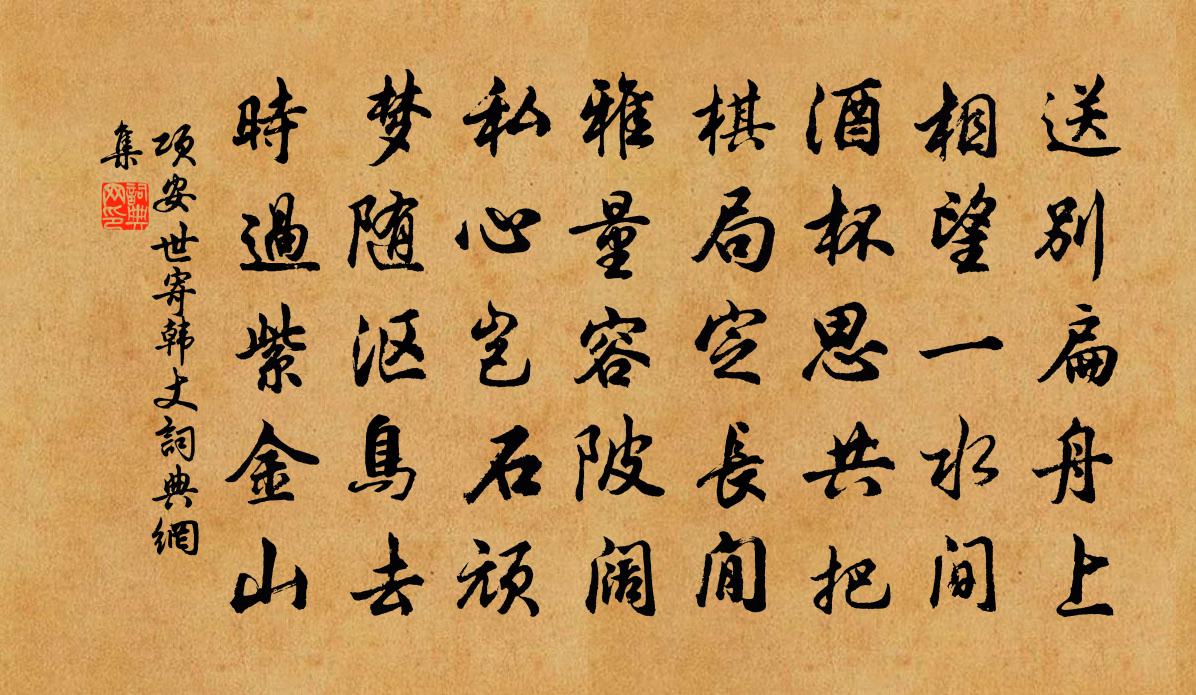 送别扁舟上
相望一水间
酒杯思共把
棋局定長閒
雅量容陂阔
私心岂石顽
梦随沤鳥去
時過紫金山
项安世寄韩丈詞典網
集
詞典网印